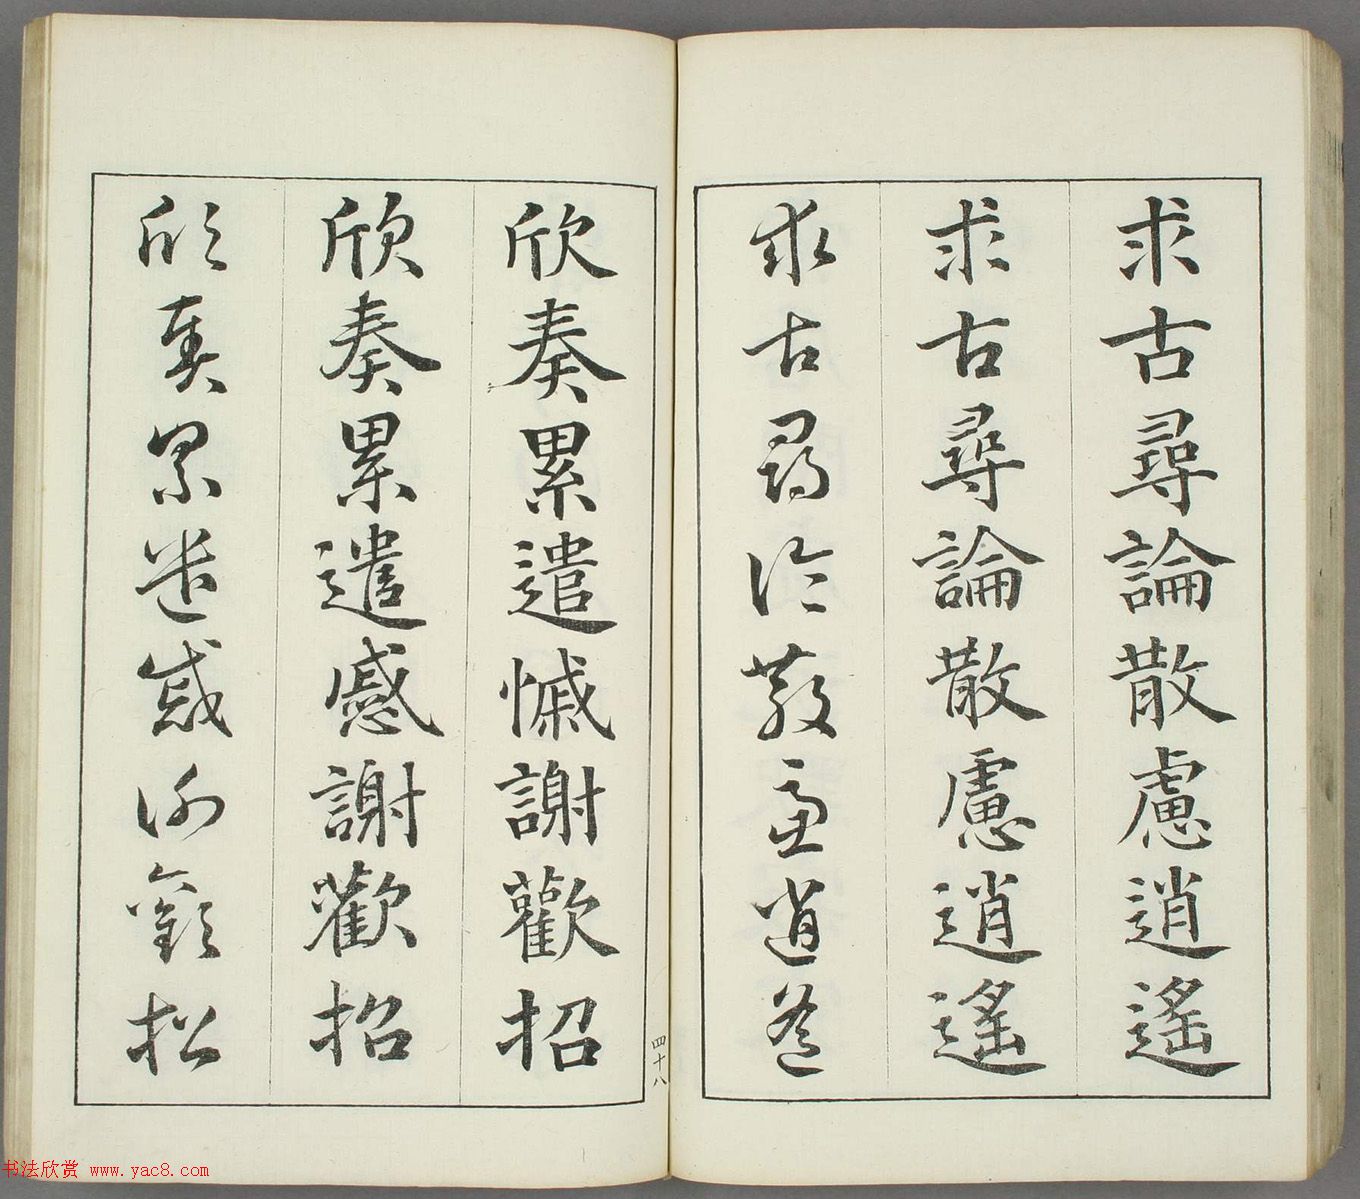 求古尋論散慮逍遙
求古尋論散慮逍遙
求古尋論散慮逍遙
欣奏累遣慽謝歡招
欣奏累遣慼謝歡招
欣奏累遣慼謝歡招
四十八
书法欣赏 www.yac8.com